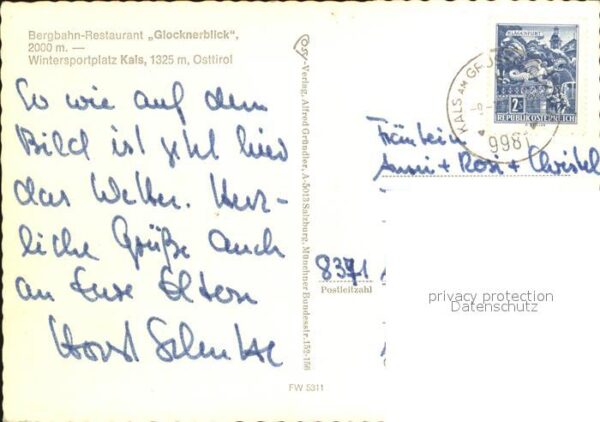 Bergbahn-Restaurant „Glocknerblick",
2000 m. —
Wintersportplatz Kals, 1325 m, Osttirol
So wie auf dem
Bild ist jetzt hier
das Wetter. Herz-
liche Grüße auch
an Eure Eltern
Horst
Cosy-Verlag, Alfred Gründler, A-5013 Salzburg, Münchner Bundesstr. 152-156
FW 5311
KLAGENFURT
2 S
REPUBLIK ÖSTERREICH
KALS AM
9981
Fräulein
Anni + Rosi + Christel
8371
Postleitzahl
privacy protection
Datenschutz